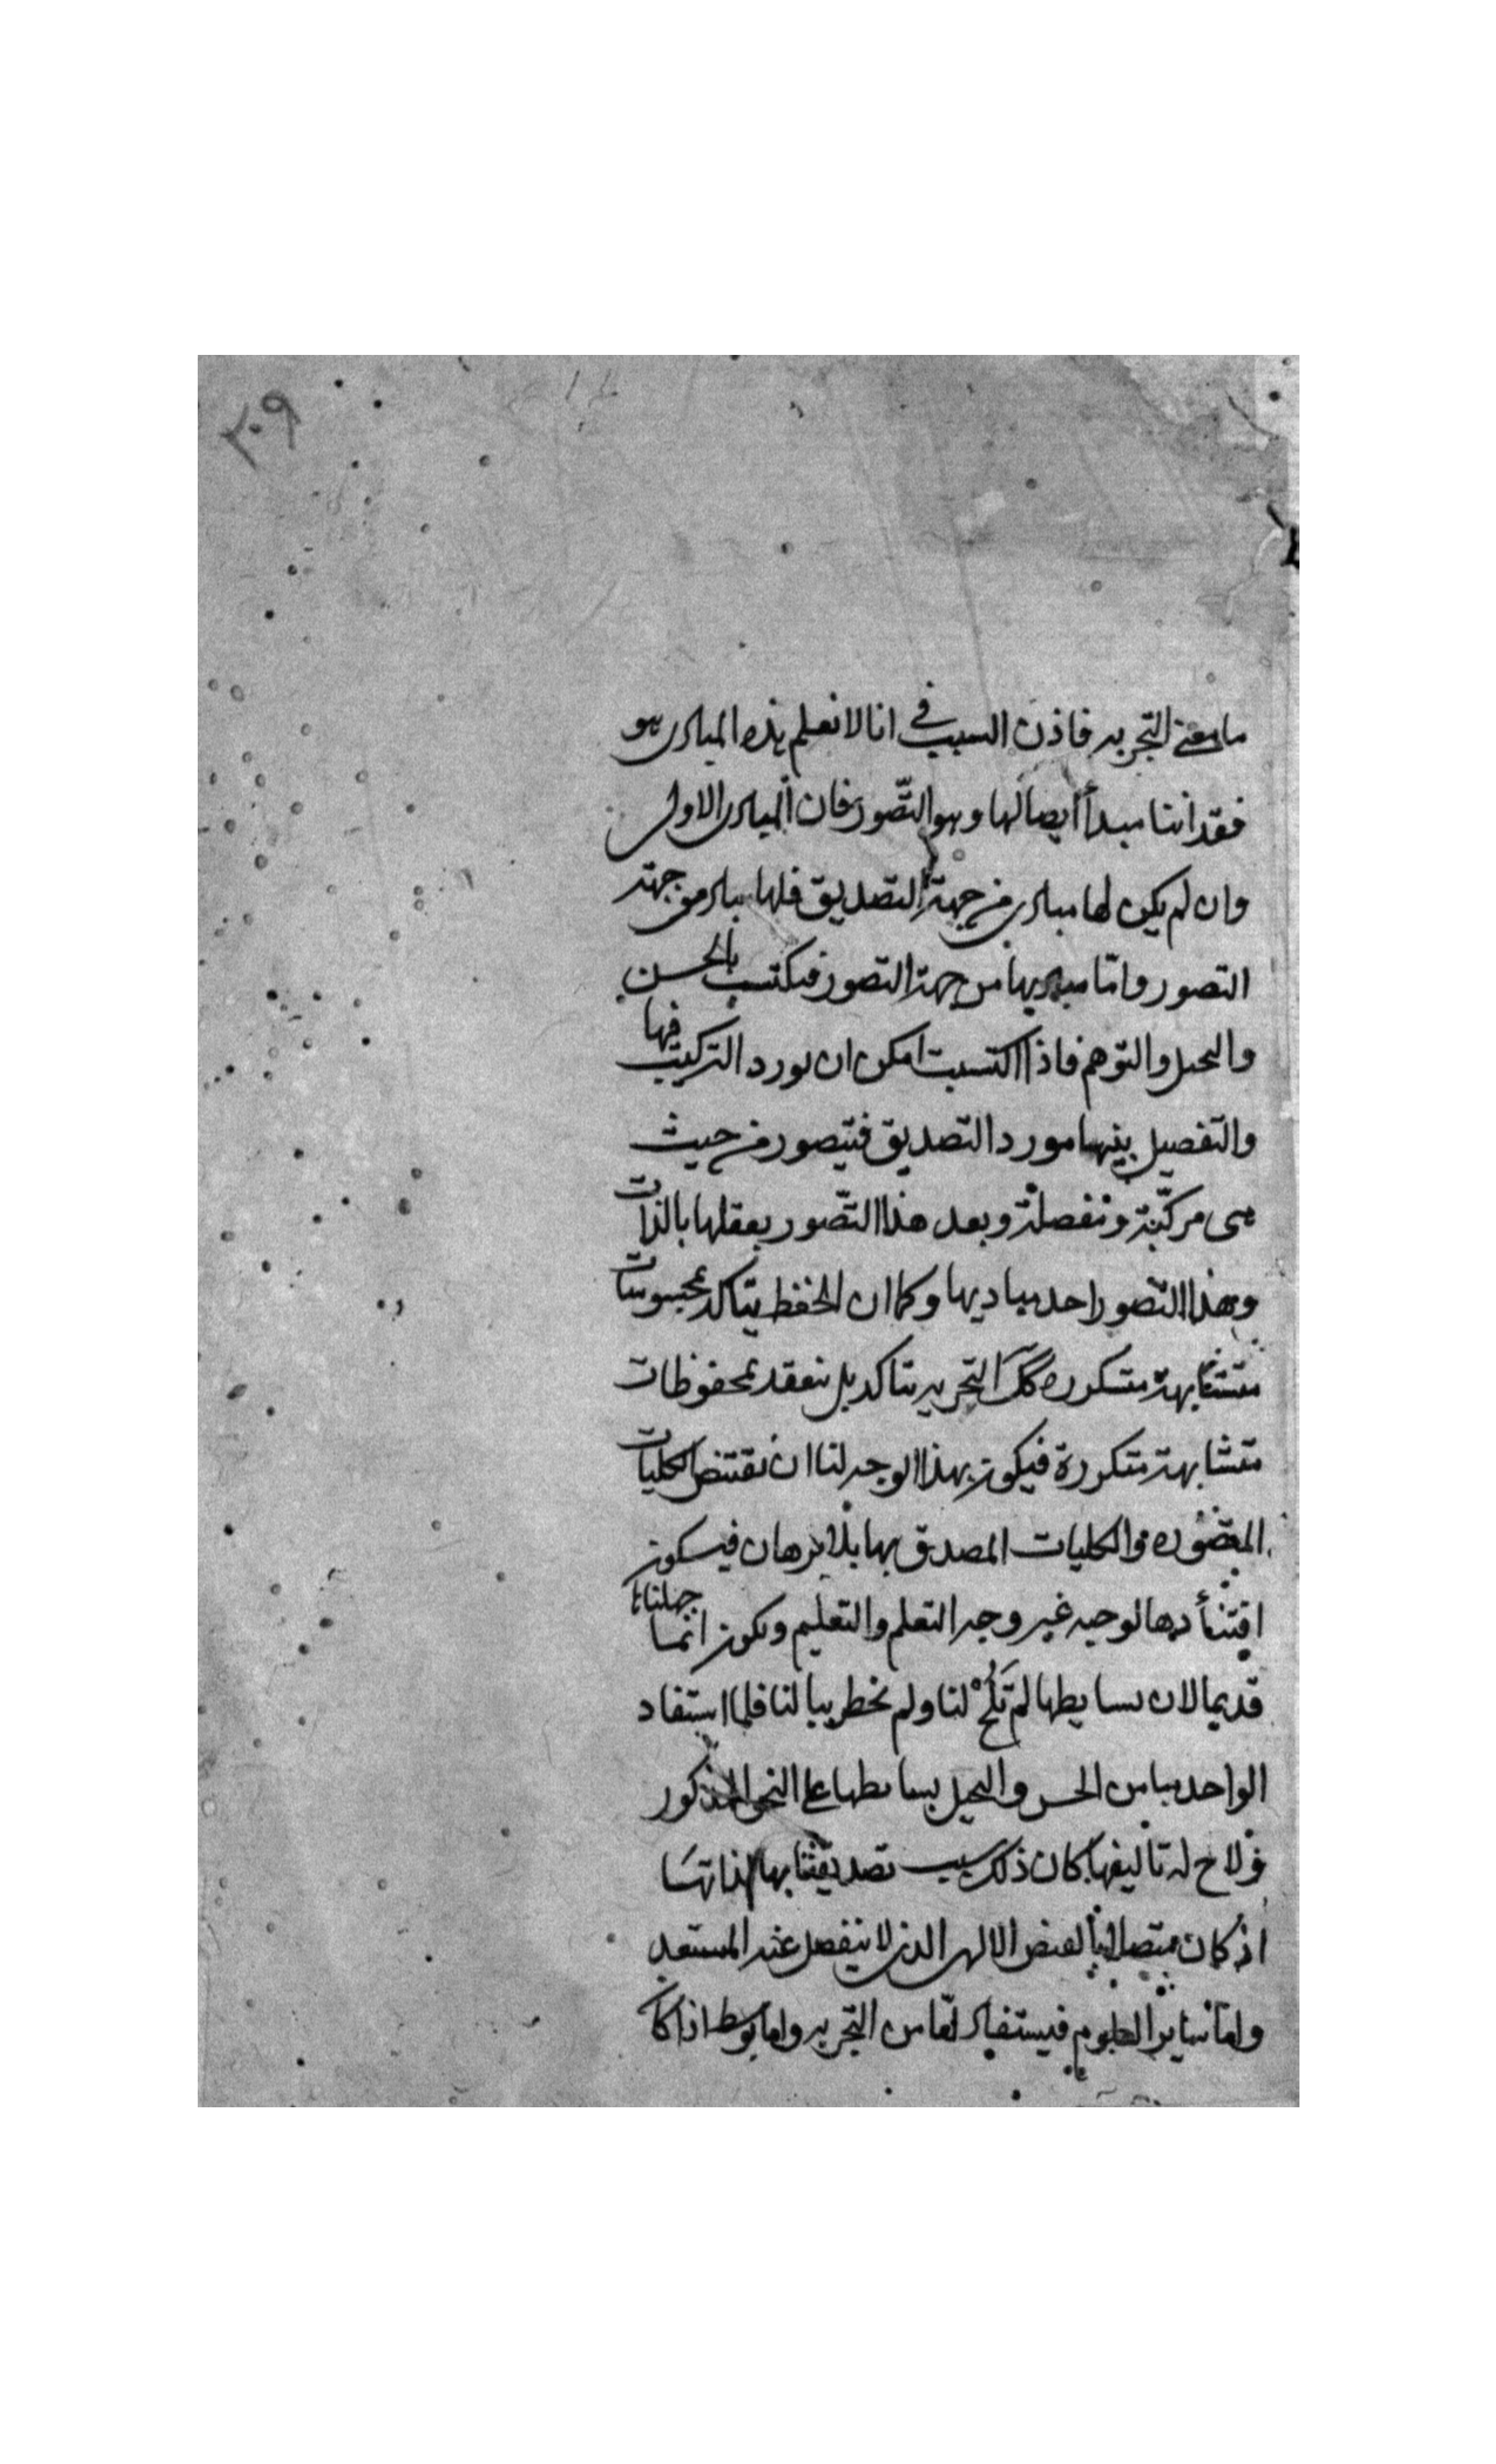 ٢٠٩
ما معنى التجربه فاذن السبب في انا لا نعلم هذه المبادى هو
فقداننا مبدأ ايصالها وهو التصور فان المبادى الاولى
وان لم يكن لها مبادى من جهة التصديق فلها مبادى من جهة
التصور واما مباديها من جهة التصور فيكتسب بالحس
والتخيل والتوهم فاذا اكتسبت امكن ان يورد التركيب فيها
والتفصيل بينهما مورد التصديق فيتصور من حيث
هى مركّبة ومفصلة وبعد هذا التصّور يعقلها بالذات
وهذا التصور احد مباديها وكما ان الحفظ يتاكد بمحسوسات
متشابهة متكرره كذلك التجربه يتاكد بل ينعقد بمحفوظات
متشابهة متكررة فيكون بهذا الوجه لنا ان نقتنص الكليات
المتصوره والكليات المصدق بها بلا برهان فيكون
لوجه غير وجه التعلم والتعليم ويكون انما جهلناها
قديما لان بسايطها لم تَلُحْ لنا ولم تخطر ببالنا فلما استفاد
الواحد منا من الحس والتخيل بسايطها على النحو المذكور
ولاح له تاليفها كان ذلك سبب تصديقنا بها لذاتها
اذ كان متصلا بالفيض الالهى الذى لا ينفصل عنه المستعد
واما ساير العلوم فيستفاد اما من التجربه واما بوسط اذا كان